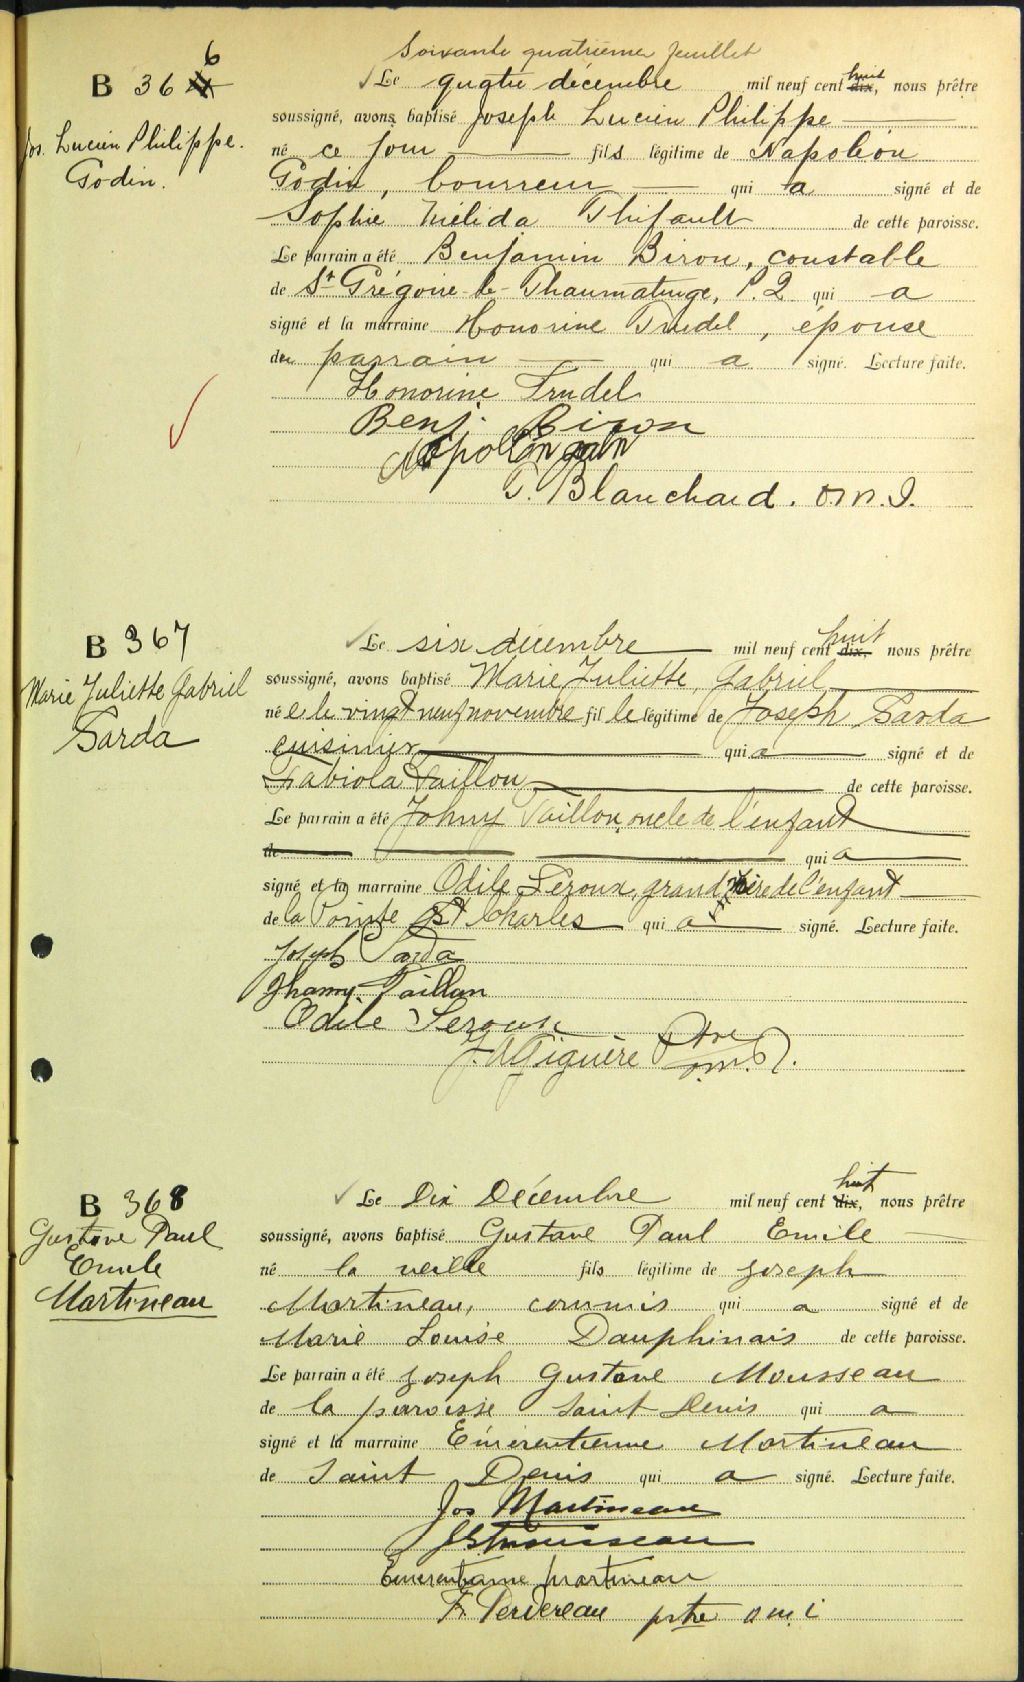 Soixante quatrième feuillet
B 366
Jos. Lucien Philippe
Godin.
Le quatre décembre mil neuf cent huit dix, nous prêtre
soussigné, avons baptisé Joseph Lucien Philippe
né ce jour fils légitime de Napoléon
Godin, bourreur qui a signé et de
Sophie Mélida Thifault de cette paroisse.
Le parrain a été Benjamin Biron, constable
de St Grégoire-le-Thaumaturge, P.Q qui a
signé et la marraine Honorine Trudel, épouse
du parrain qui a signé. Lecture faite.
Honorine Trudel
Benj. Biron
P. Blanchard. O.M.I.
B 367
Marie Juliette Gabriel
Sarda
Le six décembre mil neuf cent huit dix, nous prêtre
soussigné, avons baptisé Marie Juliette, Gabriel
née le vingt neuf novembre fille légitime de Joseph Sarda
cuisinier qui a signé et de
Fabiola Taillon de cette paroisse.
Le parrain a été Johny Taillon, oncle de l'enfant
de qui a
signé et la marraine Odile Leroux, grand mère de l'enfant
de la Pointe St Charles qui a signé. Lecture faite.
Joseph Sarda
Jhamy Taillon
Odile Leroux
J. A Giguère Ptre
o.m.I.
B 368
Gustave Paul
Emile
Martineau
Le Dix Décembre mil neuf cent huit dix, nous prêtre
soussigné, avons baptisé Gustave Paul Emile
né la veille fils légitime de Joseph
Martineau, commis qui a signé et de
Marie Louise Dauphinais de cette paroisse.
Le parrain a été Joseph Gustave Mousseau
de la paroisse Saint Denis qui a
signé et la marraine Emérentienne Martineau
de Saint Denis qui a signé. Lecture faite.
Jos Martineau
J G Mousseau
Emerentienne Martineau
F. Perdereau ptre o m i